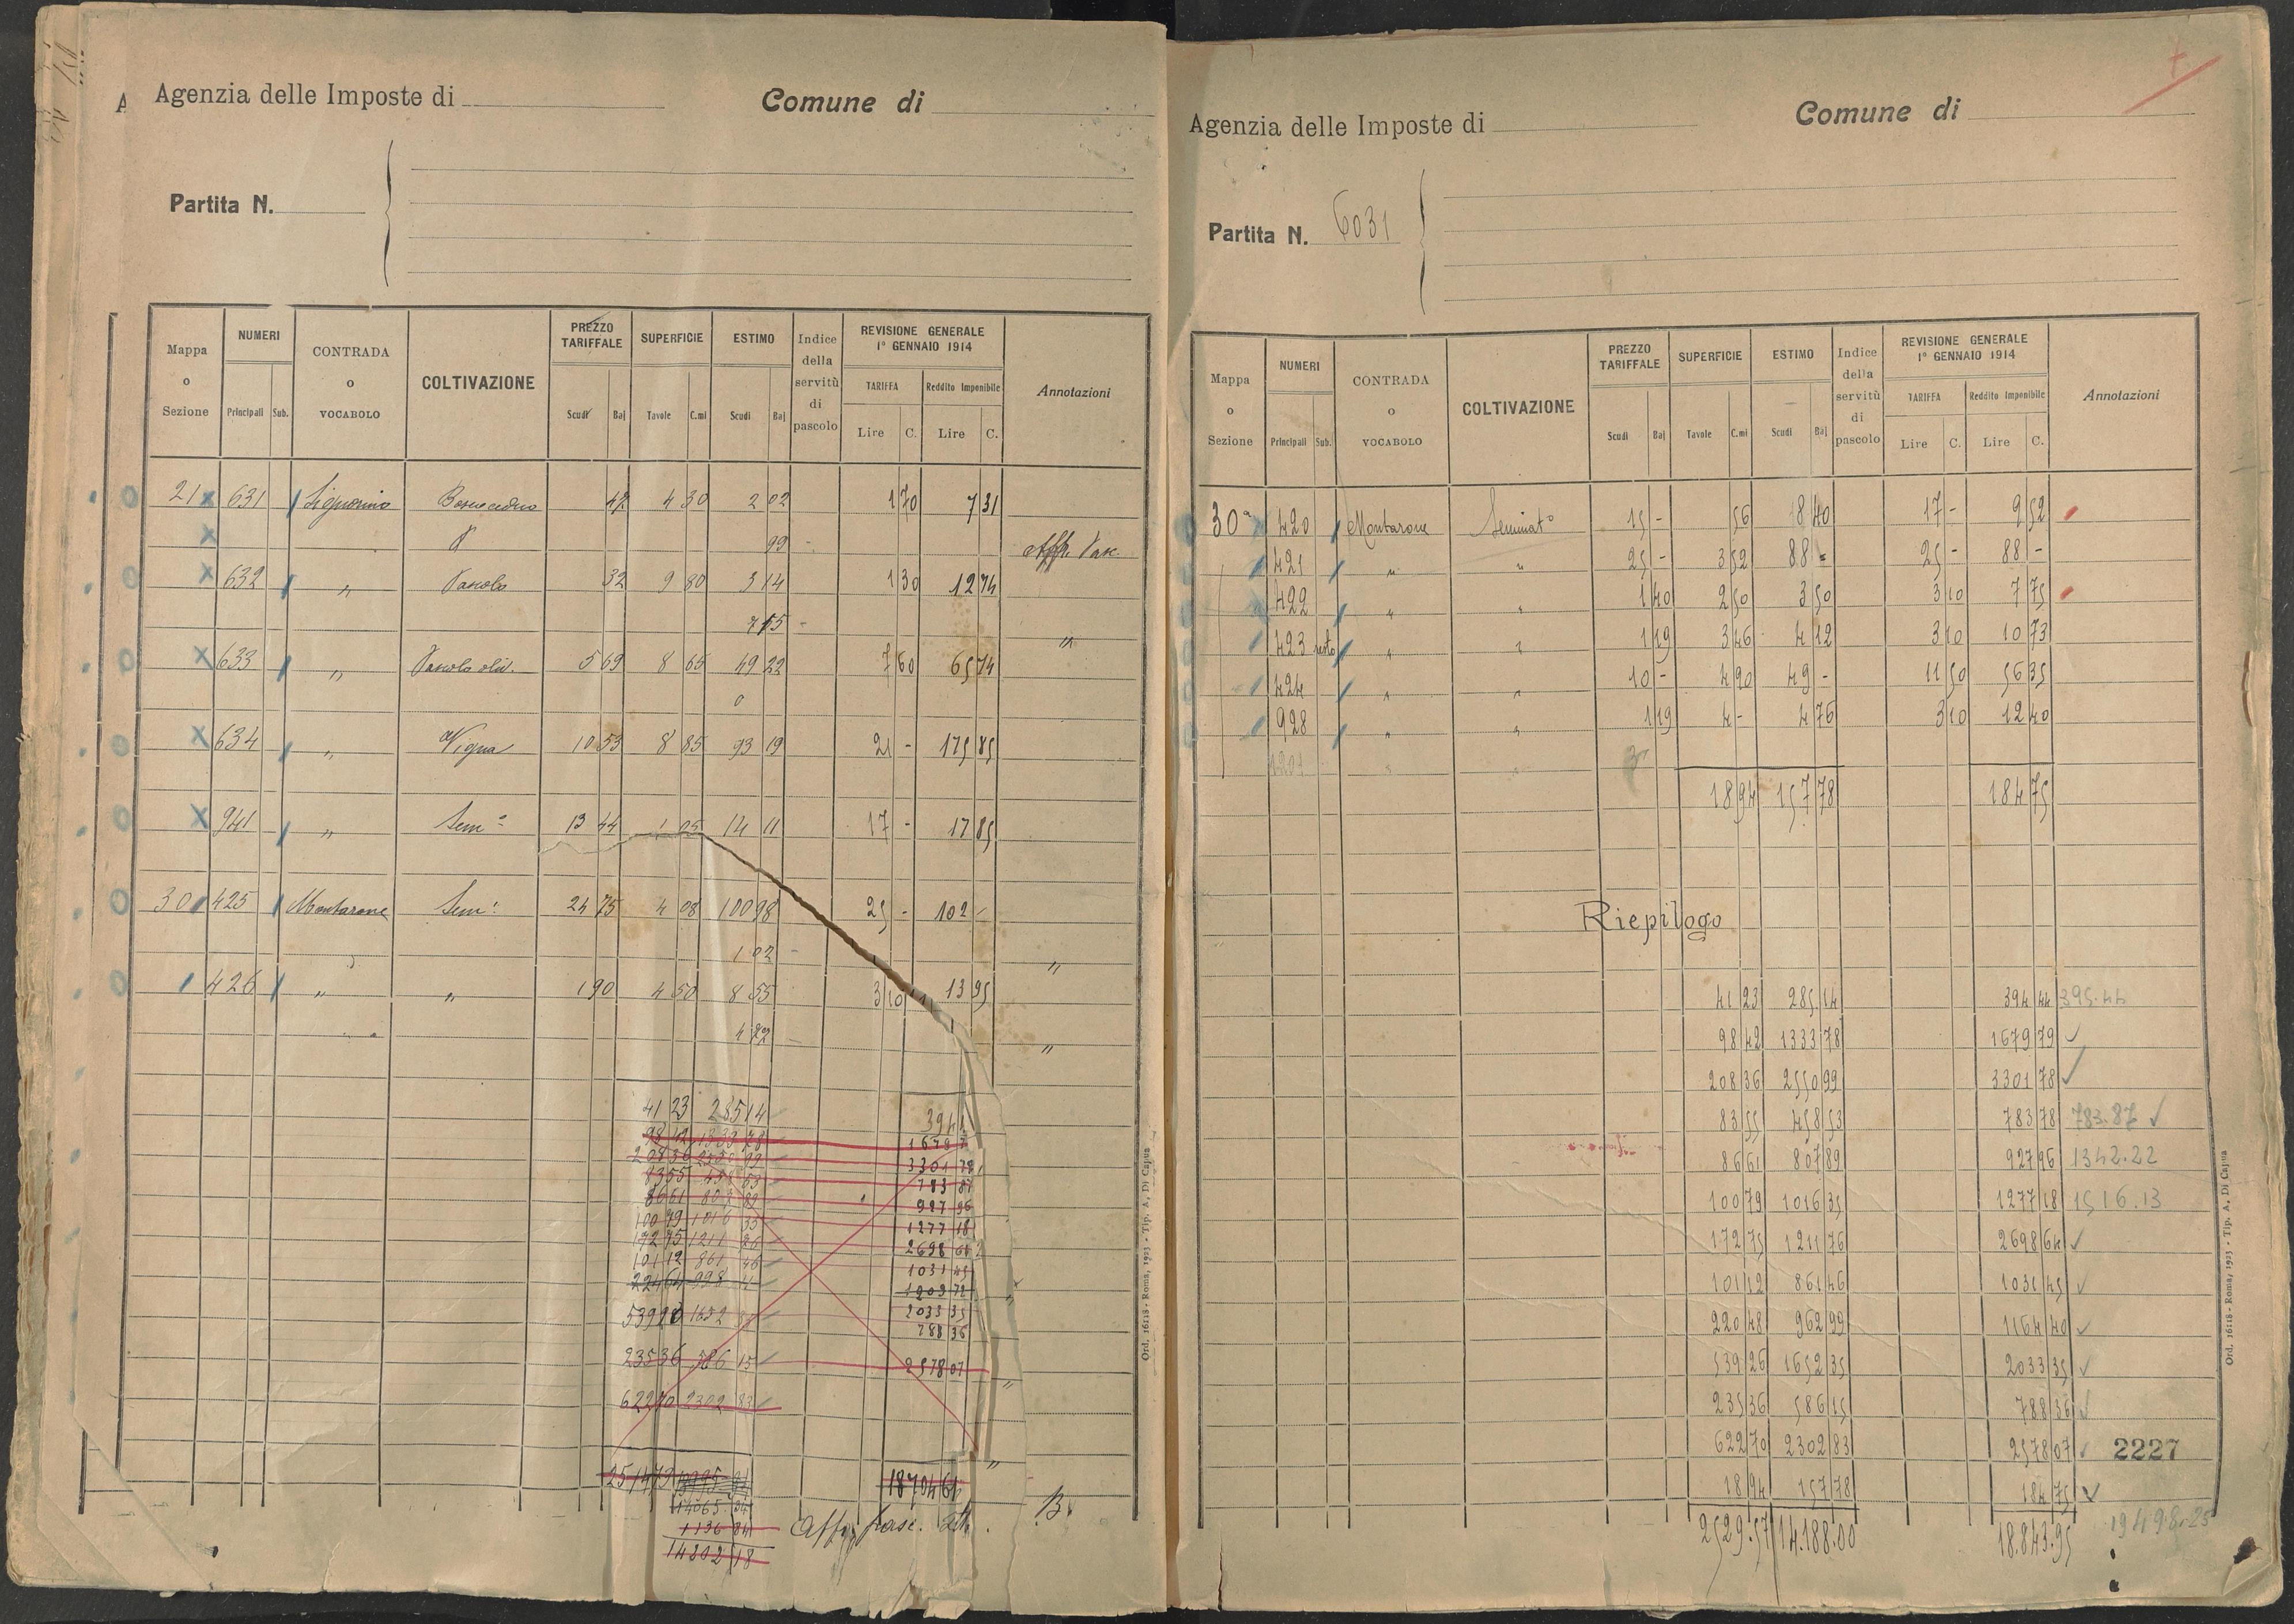 Agenzia delle Imposte di
Comune di
Partita N.
Mappa o Sezione
NUMERI
Principali Sub.
CONTRADA o VOCABOLO
COLTIVAZIONE
PREZZO TARIFFALE
Scudi Baj
SUPERFICIE
Tavole C.mi
ESTIMO
Scudi Baj
Indice della servitù di pascolo
REVISIONE GENERALE 1° GENNAIO 1914
TARIFFA
Lire C.
Reddito Imponibile
Lire C.
Annotazioni
21 631 47 4 30 2 02 1 70 7 31
99
632 " Pascolo 32 9 80 3 14 1 30 12 74
"
633 " Pascolo oliv. 5 69 8 65 49 22 7 60 65 74
0
634 " Vigna 10 53 8 85 93 19 21 - 175 85
941 " Sem° 13 44 1 05 14 11 17 - 17 85
30 425 Montarone Sem: 24 75 4 08 100 98 25 - 102 -
1 02 "
426 " " 1 90 4 50 8 55 3 10 13 95
"
41 23 285 14 394
98 42 1333 78 1679
208 36 2550 99 3301 78
83 55 458 53 783 87
86 61 807 89 927 96
100 79 1016 35 1277 18
172 75 1211 76 2698 64
101 12 861 46 1031 45
224 64 998
2033 35
788 36
235 36 586 15 2578 07
622 70 2302 83
18704 61
14065
1136 84
14202 18
Ord. 16118 - Roma, 1923 - Tip. A. Di Capua
Agenzia delle Imposte di
Comune di
Partita N. 6031
Mappa o Sezione
NUMERI
Principali Sub.
CONTRADA o VOCABOLO
COLTIVAZIONE
PREZZO TARIFFALE
Scudi Baj
SUPERFICIE
Tavole C.mi
ESTIMO
Scudi Baj
Indice della servitù di pascolo
REVISIONE GENERALE 1° GENNAIO 1914
TARIFFA
Lire C.
Reddito Imponibile
Lire C.
Annotazioni
30ª 420 Montarone Seminat° 15 - 56 18 40 17 - 9 52
421 " " 25 - 3 52 88 - 25 - 88 -
422 " " 1 40 2 50 3 50 3 10 7 75
423 resto " " 1 19 3 46 4 12 3 10 10 73
424 " " 10 - 4 90 49 - 11 50 56 35
928 " " 1 19 4 - 4 76 3 10 12 40
18 94 157 78 184 75
Riepilogo
41 23 285 14 394 44 395.44
98 42 1333 78 1679 79 ✓
208 36 2550 99 3301 78 ✓
83 55 458 53 783 78 783.87 ✓
86 61 807 89 927 96 1342.22
100 79 1016 35 1277 18 1516.13
172 75 1211 76 2698 64 ✓
101 12 861 46 1031 45 ✓
220 48 962 99 1164 40 ✓
539 26 1652 35 2033 35 ✓
235 36 586 15 788 36 ✓
622 70 2302 83 2578 07 ✓
2227
18 94 157 78 184 75 ✓
2529.57 14.188.00 18.843.95
Ord. 16118 - Roma, 1923 - Tip. A. Di Capua